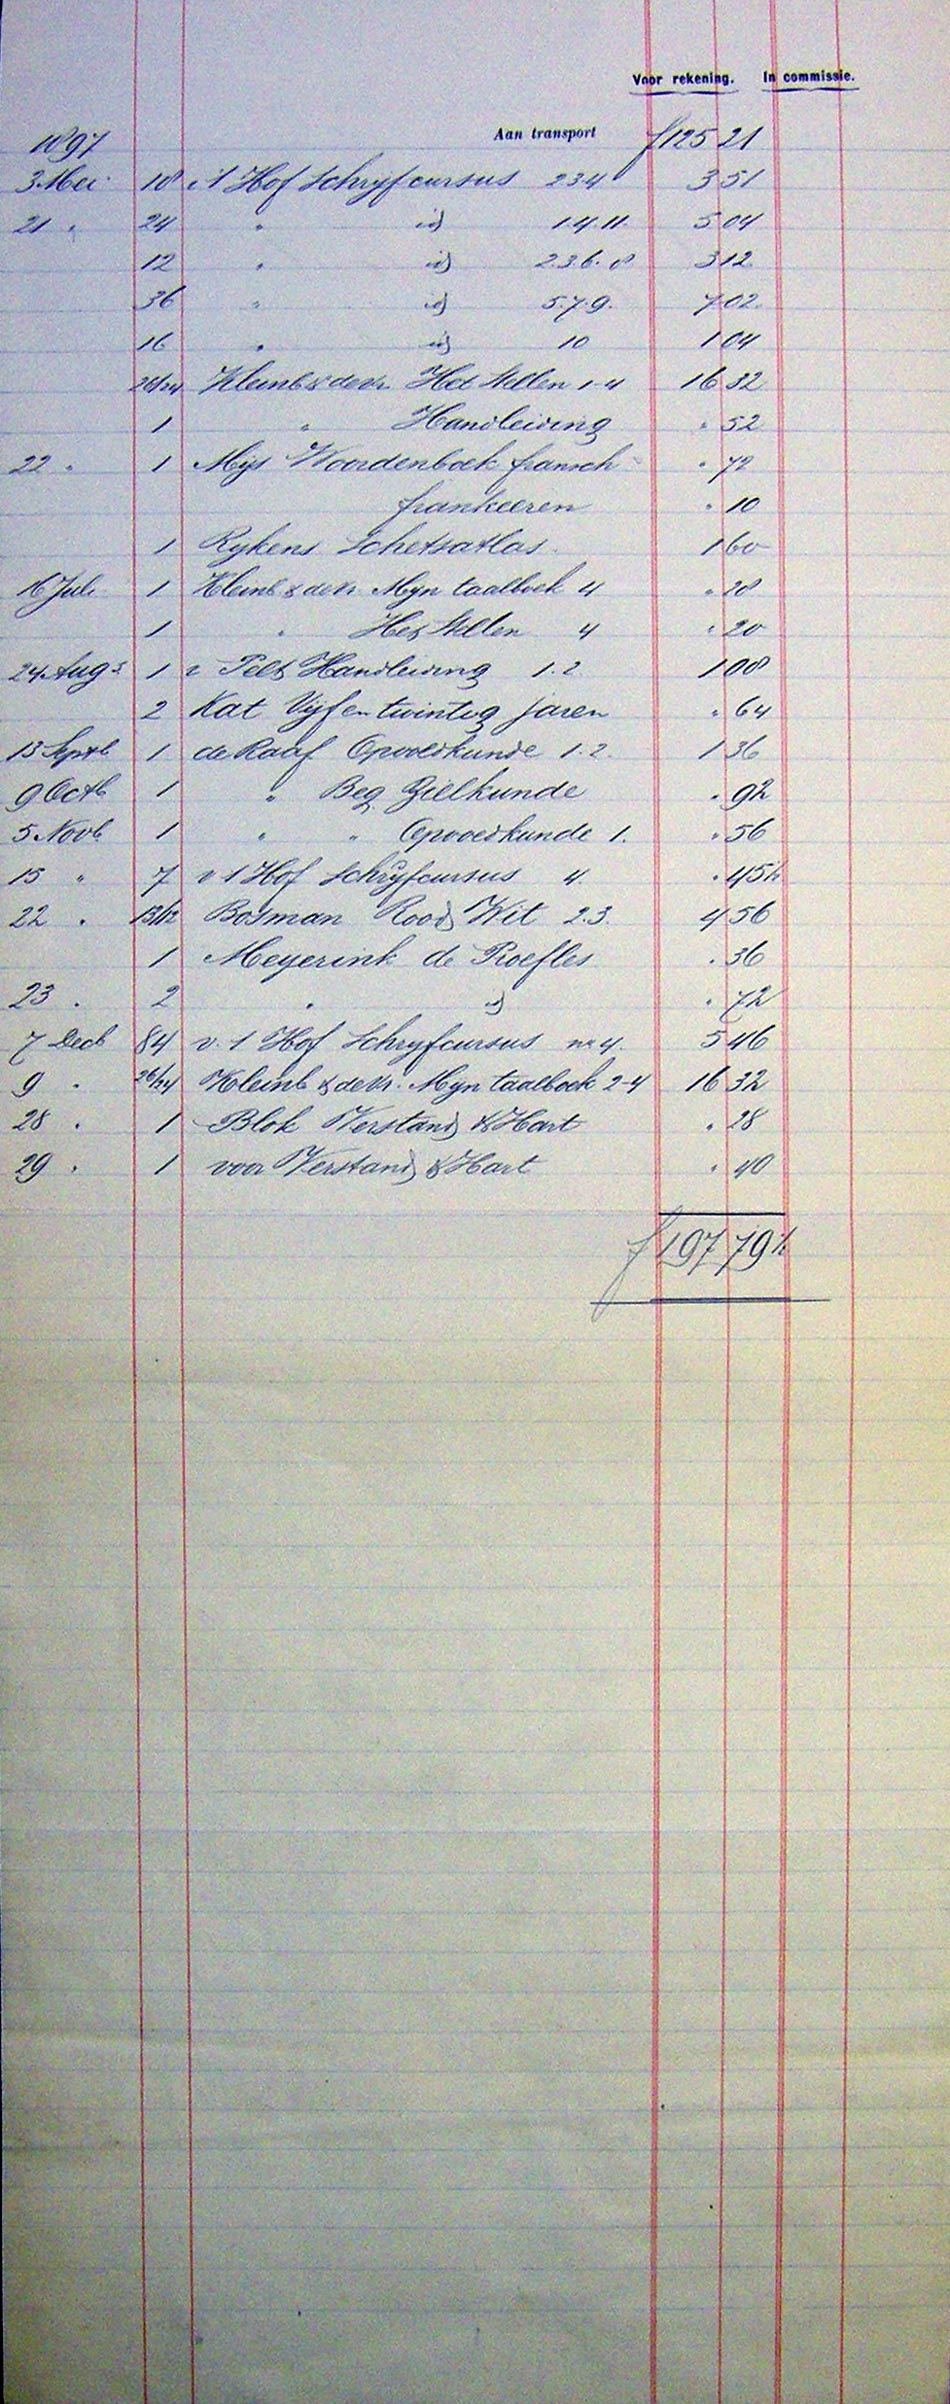 Voor rekening. In commissie.
1897 Aan transport f125 21
3 Mei 18 v 't Hof Schryfcursus 234 3 51
21 " 24 " id 1.4.11. 5 04
12 " id 2.3.6.8 3 12
36 " id 5.7.9. 7 02
16 " id 10 1 04
26/24 Kleinb & de Vr. Het Stellen 1-4 16 32
1 " Handleiding " 52
22 " 1 Mijs Woordenboek fransch " 72
frankeeren " 10
1 Rykens Schetsatlas 1 60
16 Juli 1 Kleinb & de Vr. Myn taalboek 4 " 28
1 " Het Stellen 4 " 20
24 Augs 1 v Pelt Handleiding 1.2. 1 08
2 Kat Vyf en twintig jaren " 64
13 Septb 1 de Raaf Opvoedkunde 1.2. 1 36
9 Octb 1 " Beg Zielkunde " 92
5 Novb. 1 " " Opvoedkunde 1. " 56
15 " 7 v 't Hof Schryfcursus 4. " 45½
22 " 13/12 Bosman Rood Wit 2.3. 4 56
1 Meyerink de Roefles " 36
23 " 2 " id " 72
7 Decb 84 v. 't Hof Schryfcursus nr 4. 5 46
9 " 26/24 Kleinb & de Vr. Myn taalboek 2-4 16 32
28 " 1 Blok Verstand & Hart " 28
29 " 1 voor Verstand & Hart " 40
f197 79½